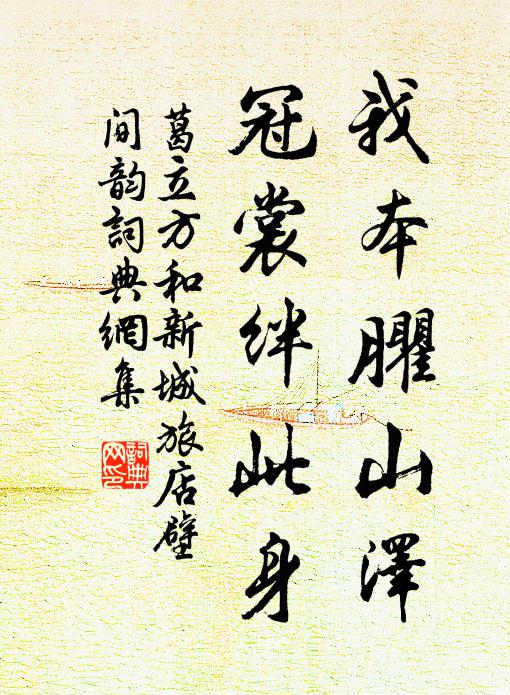 我本臞山澤
冠裳絆此身
葛立方和新城旅店壁
間韵詞典網集
詞典
網印